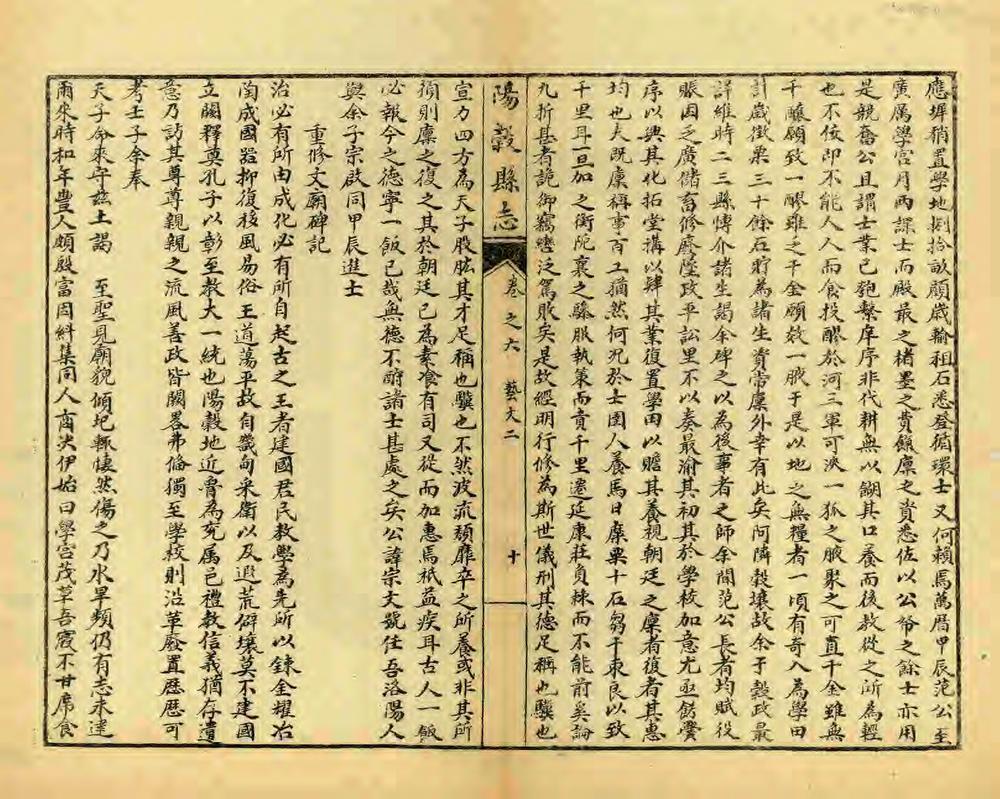 應墀稍置學地捌拾畝願歲輸租石悉登循環士又何賴焉萬曆甲辰范公至
廣厲學宮月兩課士而殿最之楮墨之費餼廩之資悉佐以公帑之餘士亦用
是競奮公且謂士業已匏繫庠序非代耕無以餬其口養而後教從之所為輕
也不佞即不能人人而食投醪於河三軍可派一狐之腋聚之可直千金雖無
千釀願致一醪雖乏千金願效一腋于是以地之無糧者一頃有奇入為學田
計歲徵粟三十餘石貯為諸生資常廩外幸有此矣阿隣穀壤故余于穀政最
詳維時二三縣博介諸生謁余碑之以為後事者之師余聞范公長者均賦役
賑困乏廣儲畜修廢墜政平訟里不以奏最渝其初其於學校加意尤亟餝黌
序以興其化拓堂搆以肆其業復置學田以贍其養視朝廷之廩者復者其惠
均也夫既廩稱事百工猶然何況於士圉人養馬日糜粟十石芻千束良以致
千里耳一旦加之衡阨襄之驂服執策而責千里遷延康莊負棘而不能前奚論
九折甚者詭御竊轡泛駕敗矣是故經明行修為斯世儀刑其德足稱也驥也
陽穀縣志
卷之六 藝文二
十
宣力四方為天子股肱其才足稱也驥也不然波流頹靡卒之所養或非其所
須則廩之復之其於朝廷已為素飡有司又從而加惠焉祇益疾耳古人一飯
必報今之德寧一飯已哉無德不酧諸士甚處之矣公諱崇大號任吾洛陽人
與余子宗啟同甲辰進士
重修文廟碑記
治必有所由成化必有所自起古之王者建國君民教學為先所以鍊金耀冶
陶成國器抑復移風易俗王道蕩平故自畿甸采衛以及遐荒僻壤莫不建國
立關釋奠孔子以彰至教大一統也陽穀地近魯為兗属已禮教信義猶存遺
意乃訪其尊尊親親之流風善政皆闕畧弗備獨至學校則沿革廢置歷歷可
考壬子余奉
天子命來守茲土謁 至聖見廟貌傾圮輒悽然傷之乃水旱頻仍有志未逮
兩來時和年豐人頗殷富因糾集同人商決伊始曰學宮茂草吾寢不甘席食